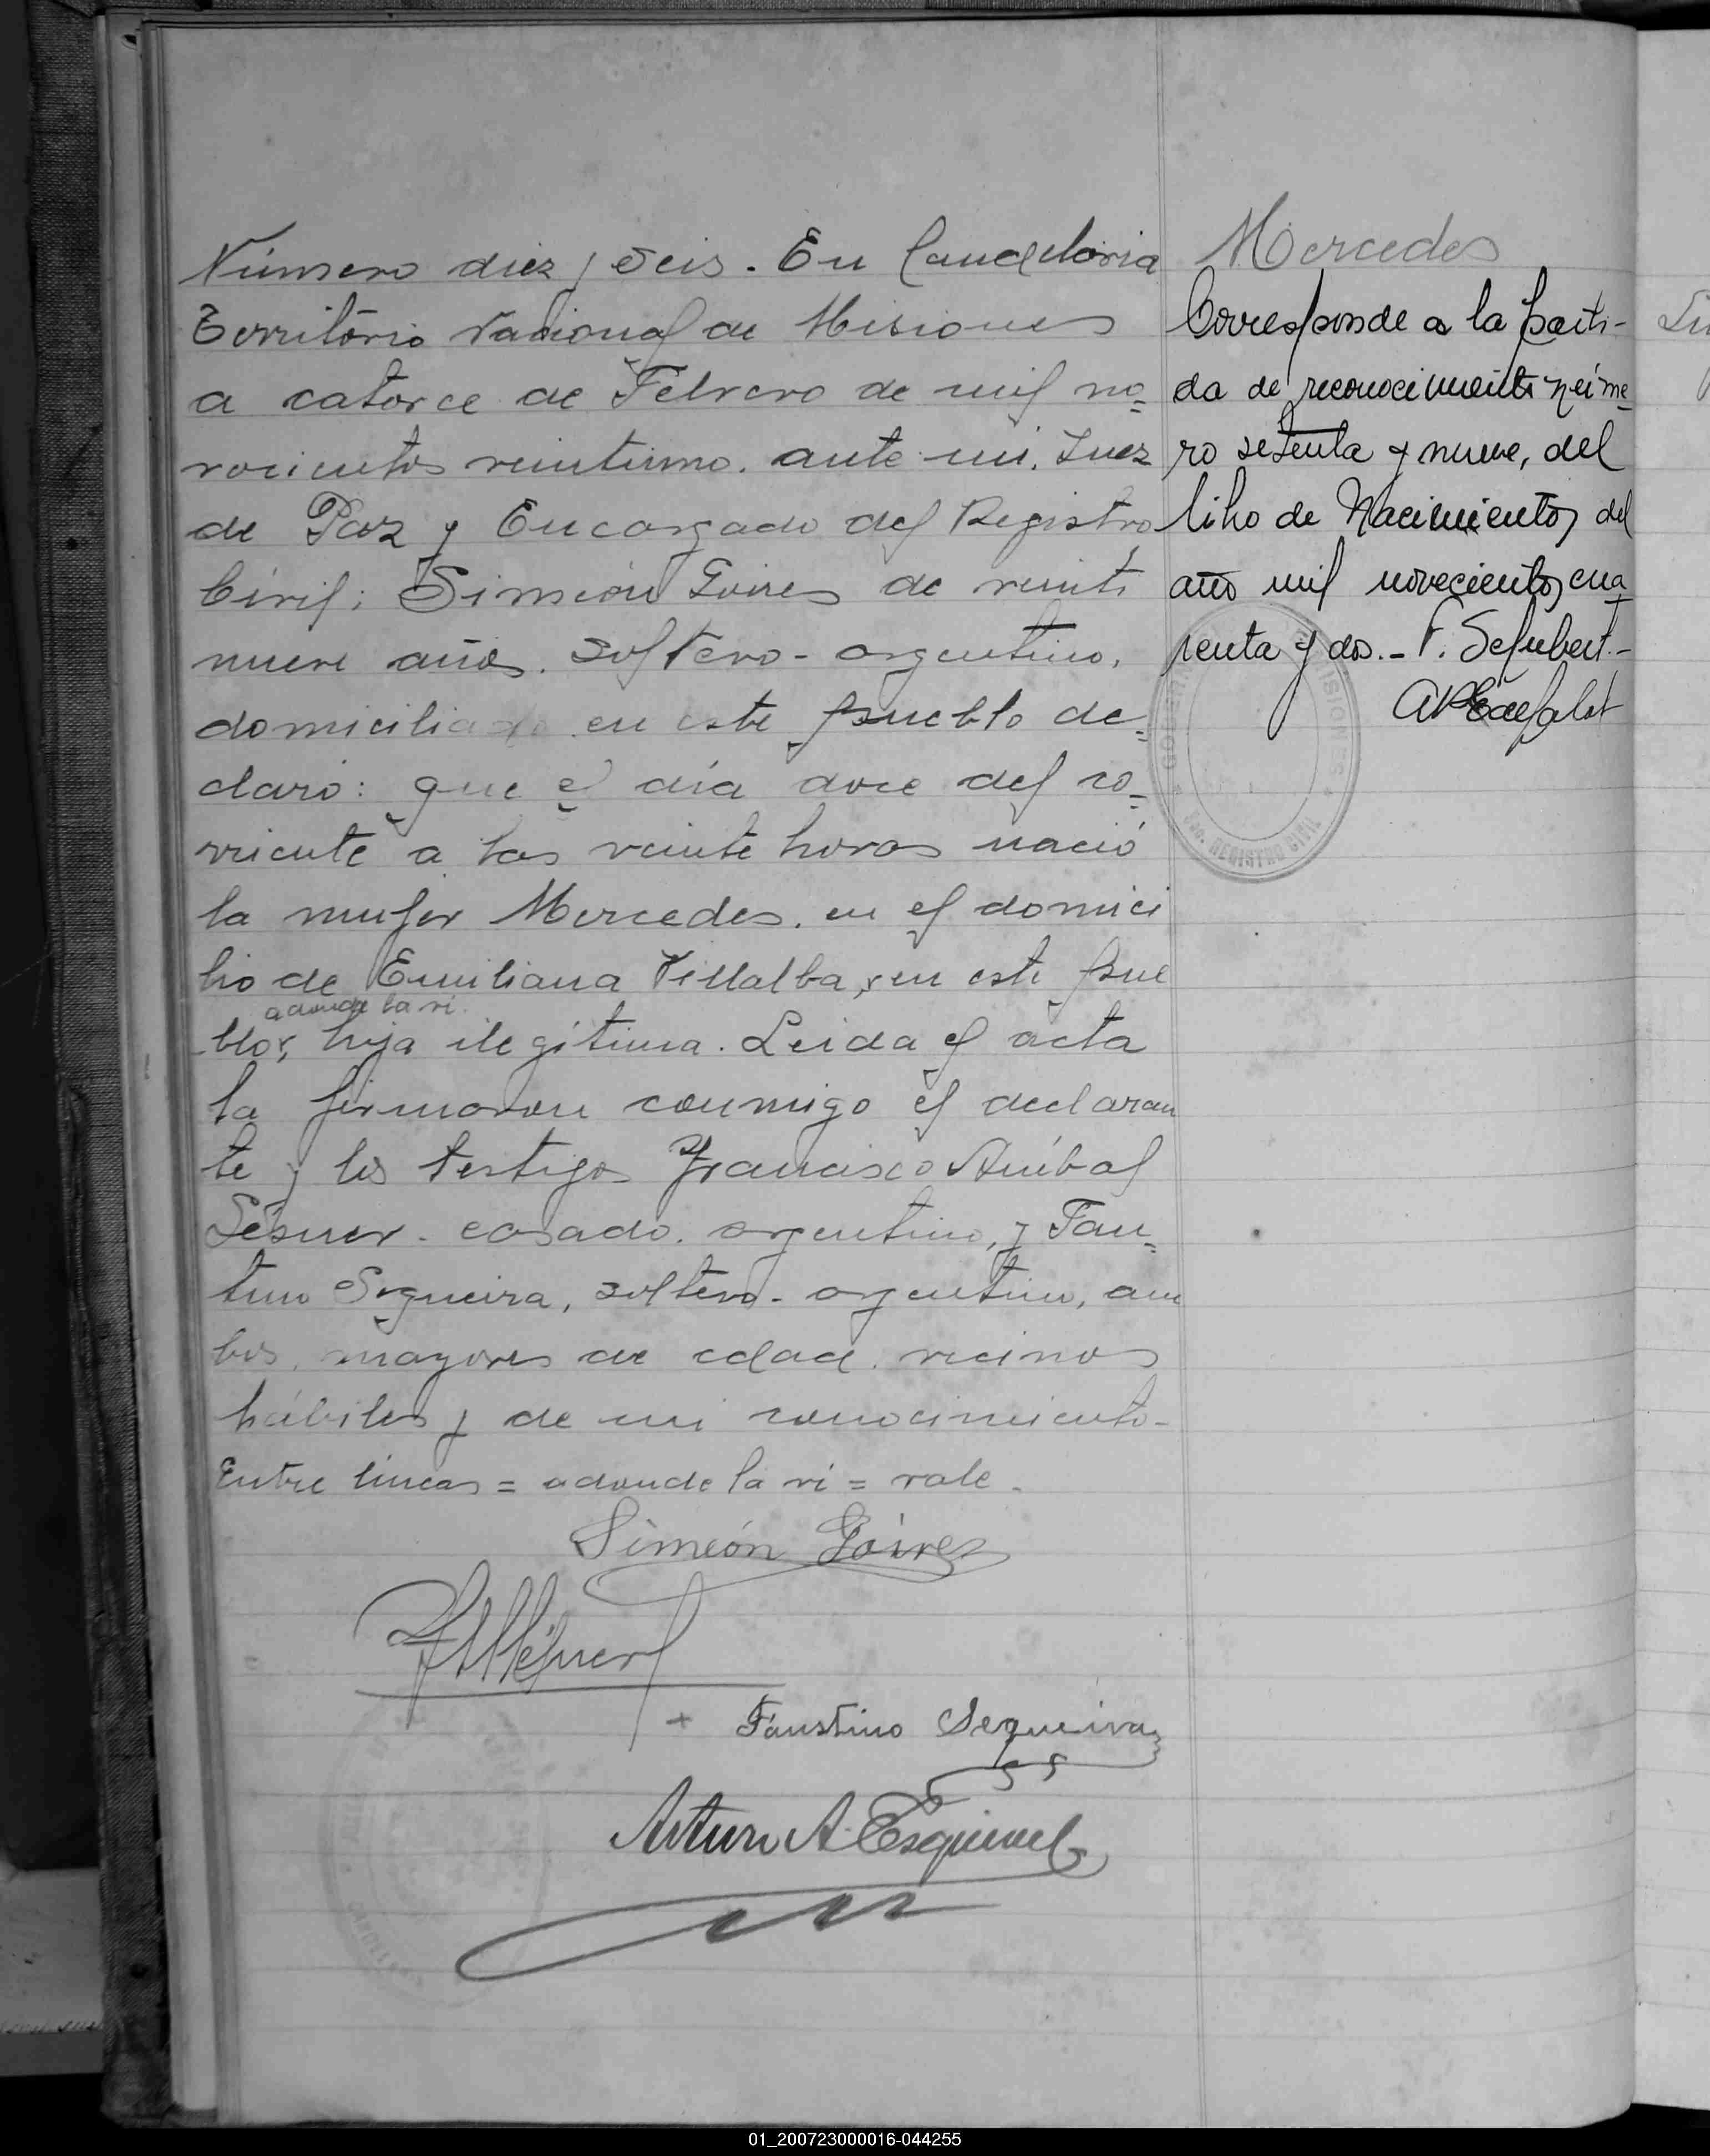 Número diez y seis. En Candelaria
Territorio Nacional de Misiones
a catorce de Febrero de mil no=
vecientos veintiuno. ante mi, Juez
de Paz y Encargado del Registro
Civil; Simeón Goires de veinti
nueve años. soltero - argentino,
domiciliado en este pueblo de=
claró: que el día doce del co=
rriente a las veinte horas nació
la mujer Mercedes. en el domici
lio de Emiliana Villalba, en este pue
adonde la vi.
blo, hija ilegítima. Leida el acta
la firmaron conmigo el declaran
te y los testigos Francisco Aníbal
Lésner - casado. argentino, y Faus=
tino Segueira, soltero - argentino, am
bos, mayores de edad. vecinos
hábiles y de mi conocimiento -
Entre líneas = adonde la vi = vale.
Simeón Goires
+ Faustino Sequeira
Arturo A. Esquivel
Mercedes
Corresponde a la parti-
da de reconocimiento núme=
ro setenta y nueve, del
libro de Nacimientos del
año mil novecientos cua
renta y dos. - F. Schubert. -
REGISTRO CIVIL
01_200723000016-044255